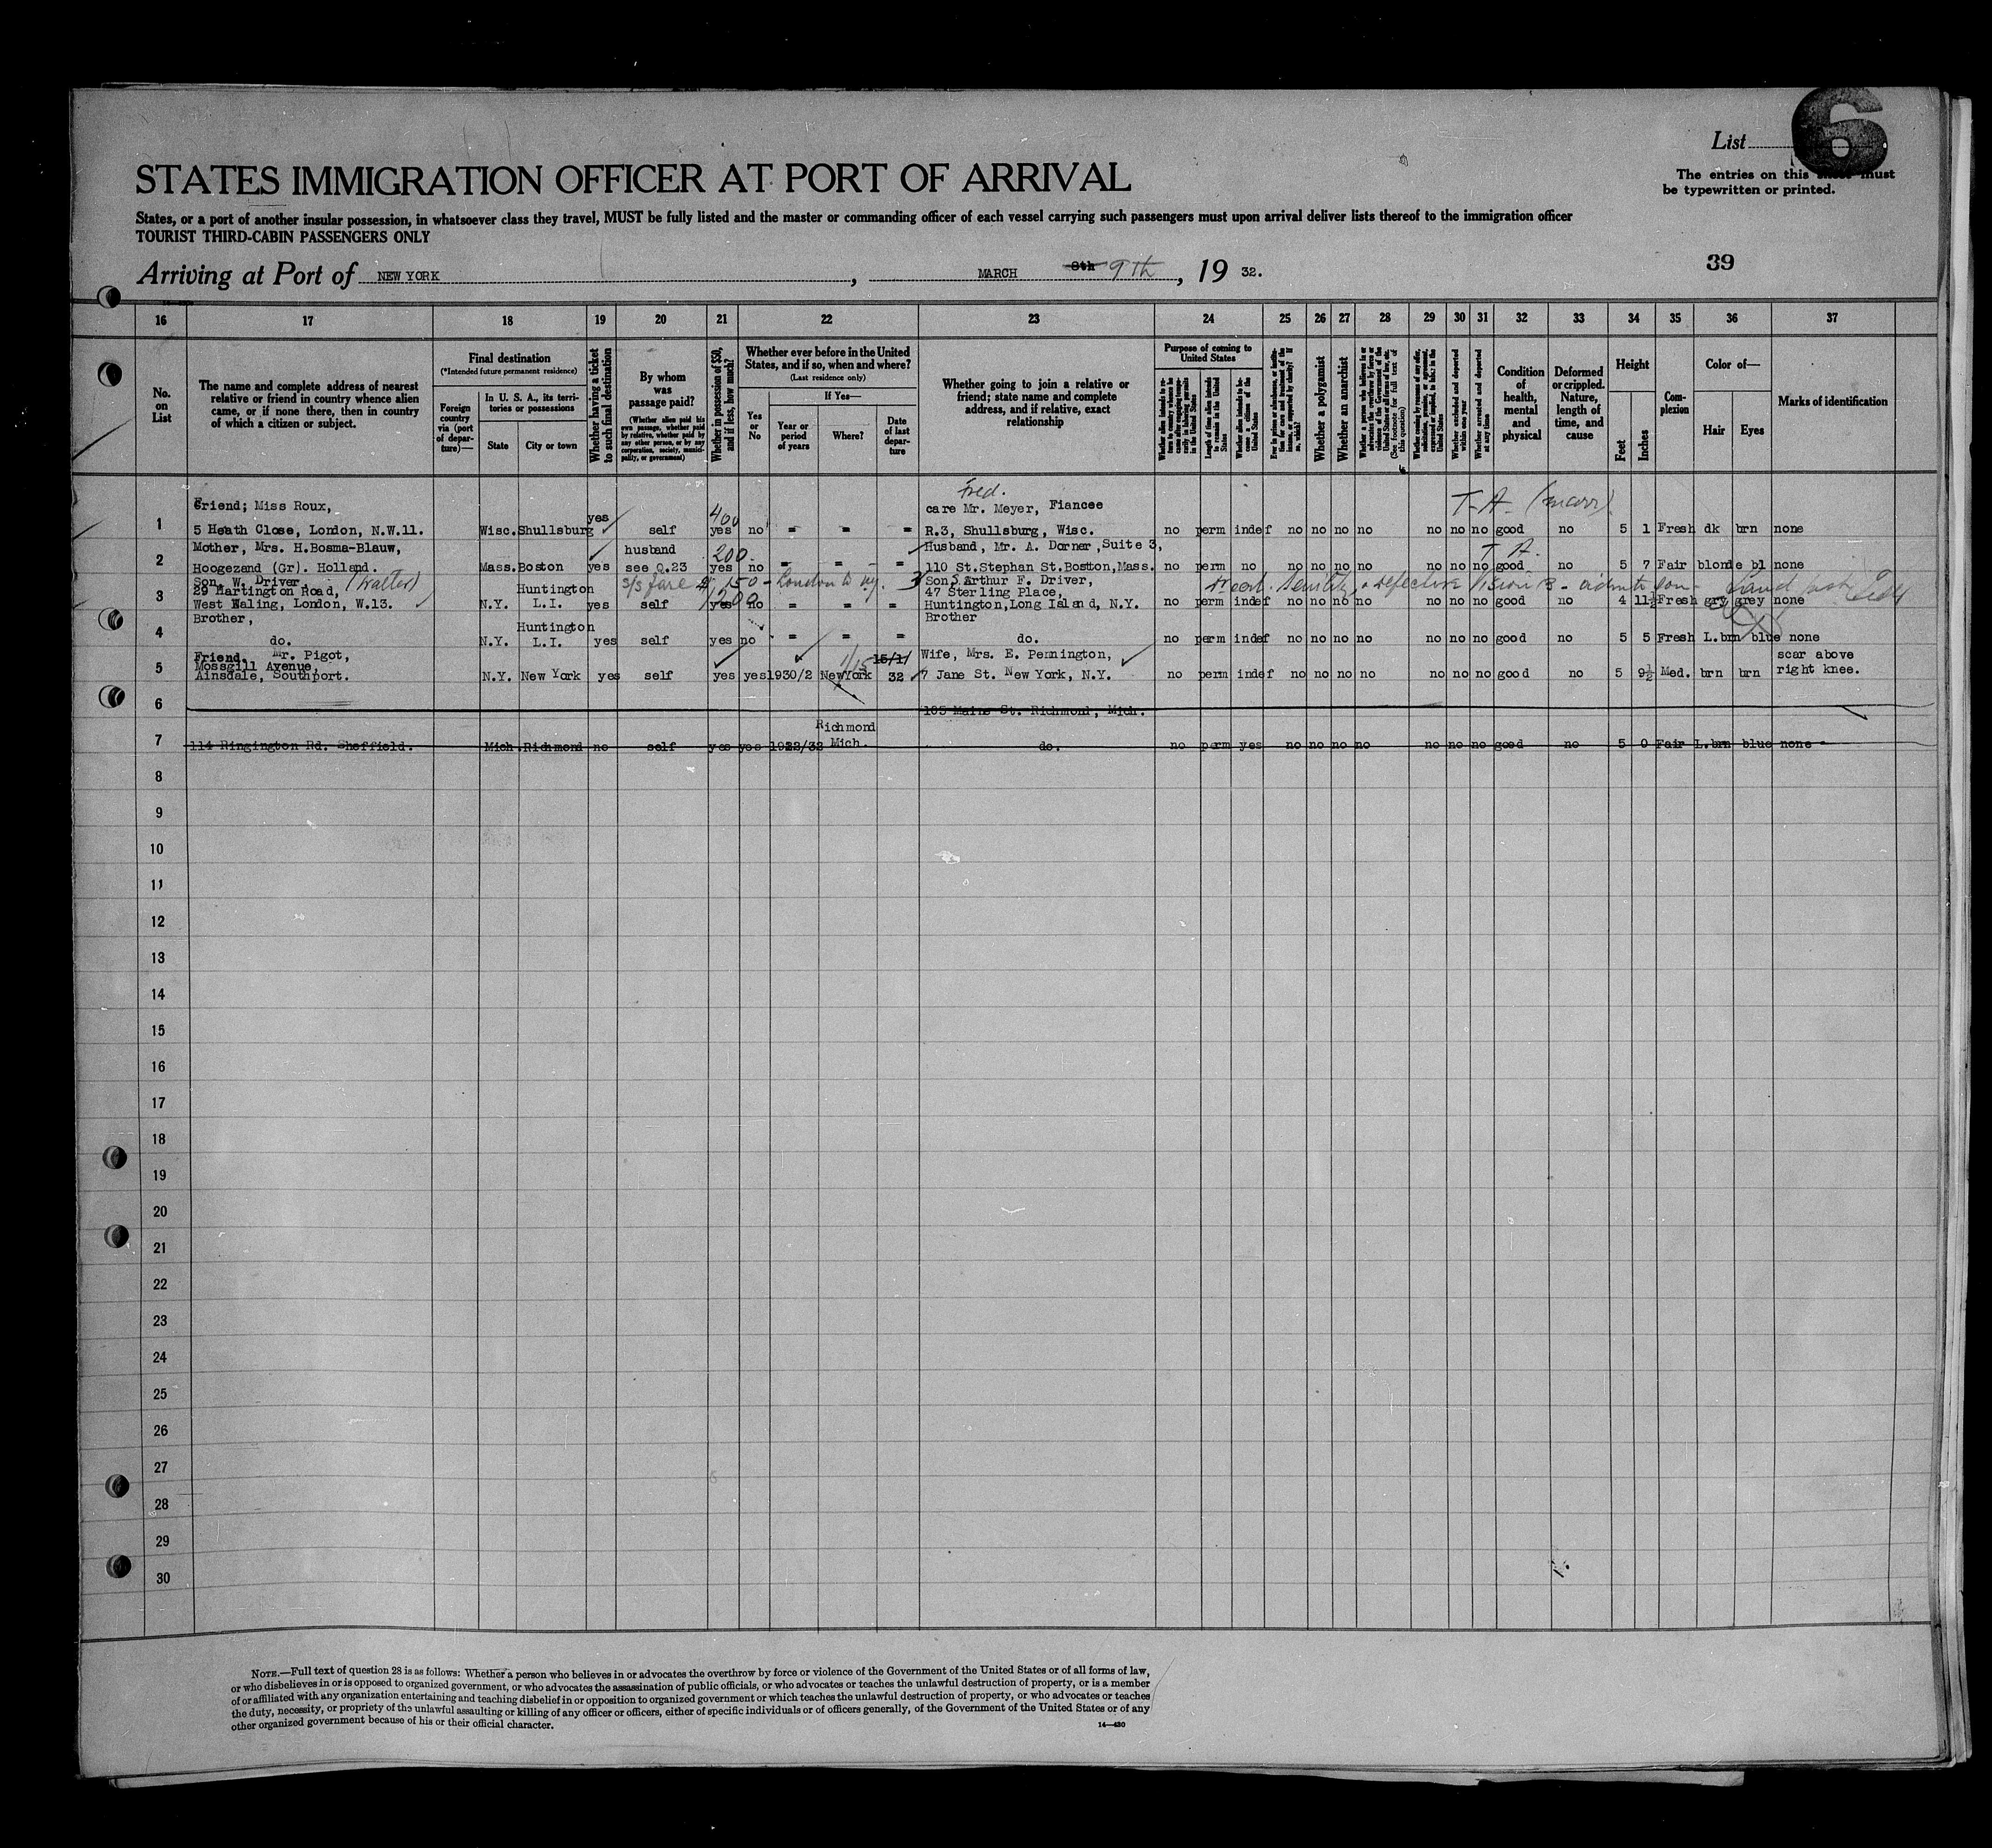 6
List
The entries on this sheet must
be typewritten or printed.
STATES IMMIGRATION OFFICER AT PORT OF ARRIVAL
States, or a port of another insular possession, in whatsoever class they travel, MUST be fully listed and the master or commanding officer of each vessel carrying such passengers must upon arrival deliver lists thereof to the immigration officer
TOURIST THIRD-CABIN PASSENGERS ONLY
Arriving at Port of NEW YORK, MARCH 8th 9th, 19 32.
39
16 17 18 19 20 21 22 23 24 25 26 27 28 29 30 31 32 33 34 35 36 37
No. on List
The name and complete address of nearest relative or friend in country whence alien came, or if none there, then in country of which a citizen or subject.
Final destination
(*Intended future permanent residence)
Foreign country via (port of departure)—
In U. S. A., its territories or possessions
State
City or town
Whether having a ticket to such final destination
By whom was passage paid?
(Whether alien paid his own passage, whether paid by relative, whether paid by any other person, or by any corporation, society, municipality, or government)
Whether in possession of $50, and if less, how much?
Whether ever before in the United States, and if so, when and where?
(Last residence only)
Yes or No
If Yes—
Year or period of years
Where?
Date of last departure
Whether going to join a relative or friend; state name and complete address, and if relative, exact relationship
Purpose of coming to United States
Length of time alien intends to remain in the United States
Whether alien intends to become a citizen of the United States
Whether a polygamist
Whether an anarchist
Whether excluded and deported within one year
Whether arrested and deported at any time
Condition of health, mental and physical
Deformed or crippled. Nature, length of time, and cause
Height
Feet
Inches
Complexion
Color of—
Hair
Eyes
Marks of identification
Friend; Miss Roux, yes 400 Fred. care Mr. Meyer, Fiancee T-A- (marr)
1 5 Heath Close, London, N.W.11. Wisc. Shullsburg self yes no = = = R.3, Shullsburg, Wisc. no perm indef no no no no no no no good no 5 1 Fresh dk brn none
Mother, Mrs. H.Bosma-Blauw, husband 200- Husband, Mr. A. Dorner, Suite 3, T A.
2 Hoogezand (Gr). Holland. Mass. Boston yes see Q.23 yes no = = = 110 St.Stephan St.Bostton,Mass. no perm no no no no no no no no good no 5 7 Fair blonde bl none
Son, W. Driver, (Walter) s/s fare 150- London to ny. Son S. Arthur F. Driver,
29 Hartington Road, Huntington 1200 47 Sterling Place,
3 West Ealing, London, W.13. N.Y. L.I. yes self yes no = = = Huntington,Long Island, N.Y. no perm indef no no no no no no no good no 4 11½ Fresh gry grey none
Brother, Huntington Brother
4 do. N.Y. L.I. yes self yes no = = = do. no perm indef no no no no no no no good no 5 5 Fresh L.brn blue none
Friend, Mr. Pigot, 1/15 15/1/ Wife, Mrs. E. Pennington, scar above
Mossgill Avenue,
5 Ainsdale, Southport. N.Y. New York yes self yes yes 1930/2 NewYork 32 7 Jane St. New York, N.Y. no perm indef no no no no no no no good no 5 9½ Med. brn brn right knee.
6 105 Mains St. Richmond, Mich.
Richmond
7 114 Ringington Rd. Sheffield. Mich. Richmond no self yes yes 1922/32 Mich. do. no perm yes no no no no no no no good no 5 0 Fair L.brn blue none
8
9
10
11
12
13
14
15
16
17
18
19
20
21
22
23
24
25
26
27
28
29
30
NOTE.—Full text of question 28 is as follows: Whether a person who believes in or advocates the overthrow by force or violence of the Government of the United States or of all forms of law,
or who disbelieves in or is opposed to organized government, or who advocates the assassination of public officials, or who advocates or teaches the unlawful destruction of property, or is a member
of or affiliated with any organization entertaining and teaching disbelief in or opposition to organized government or which teaches the unlawful destruction of property, or who advocates or teaches
the duty, necessity, or propriety of the unlawful assaulting or killing of any officer or officers, either of specific individuals or of officers generally, of the Government of the United States or of any
other organized government because of his or their official character.
14—430